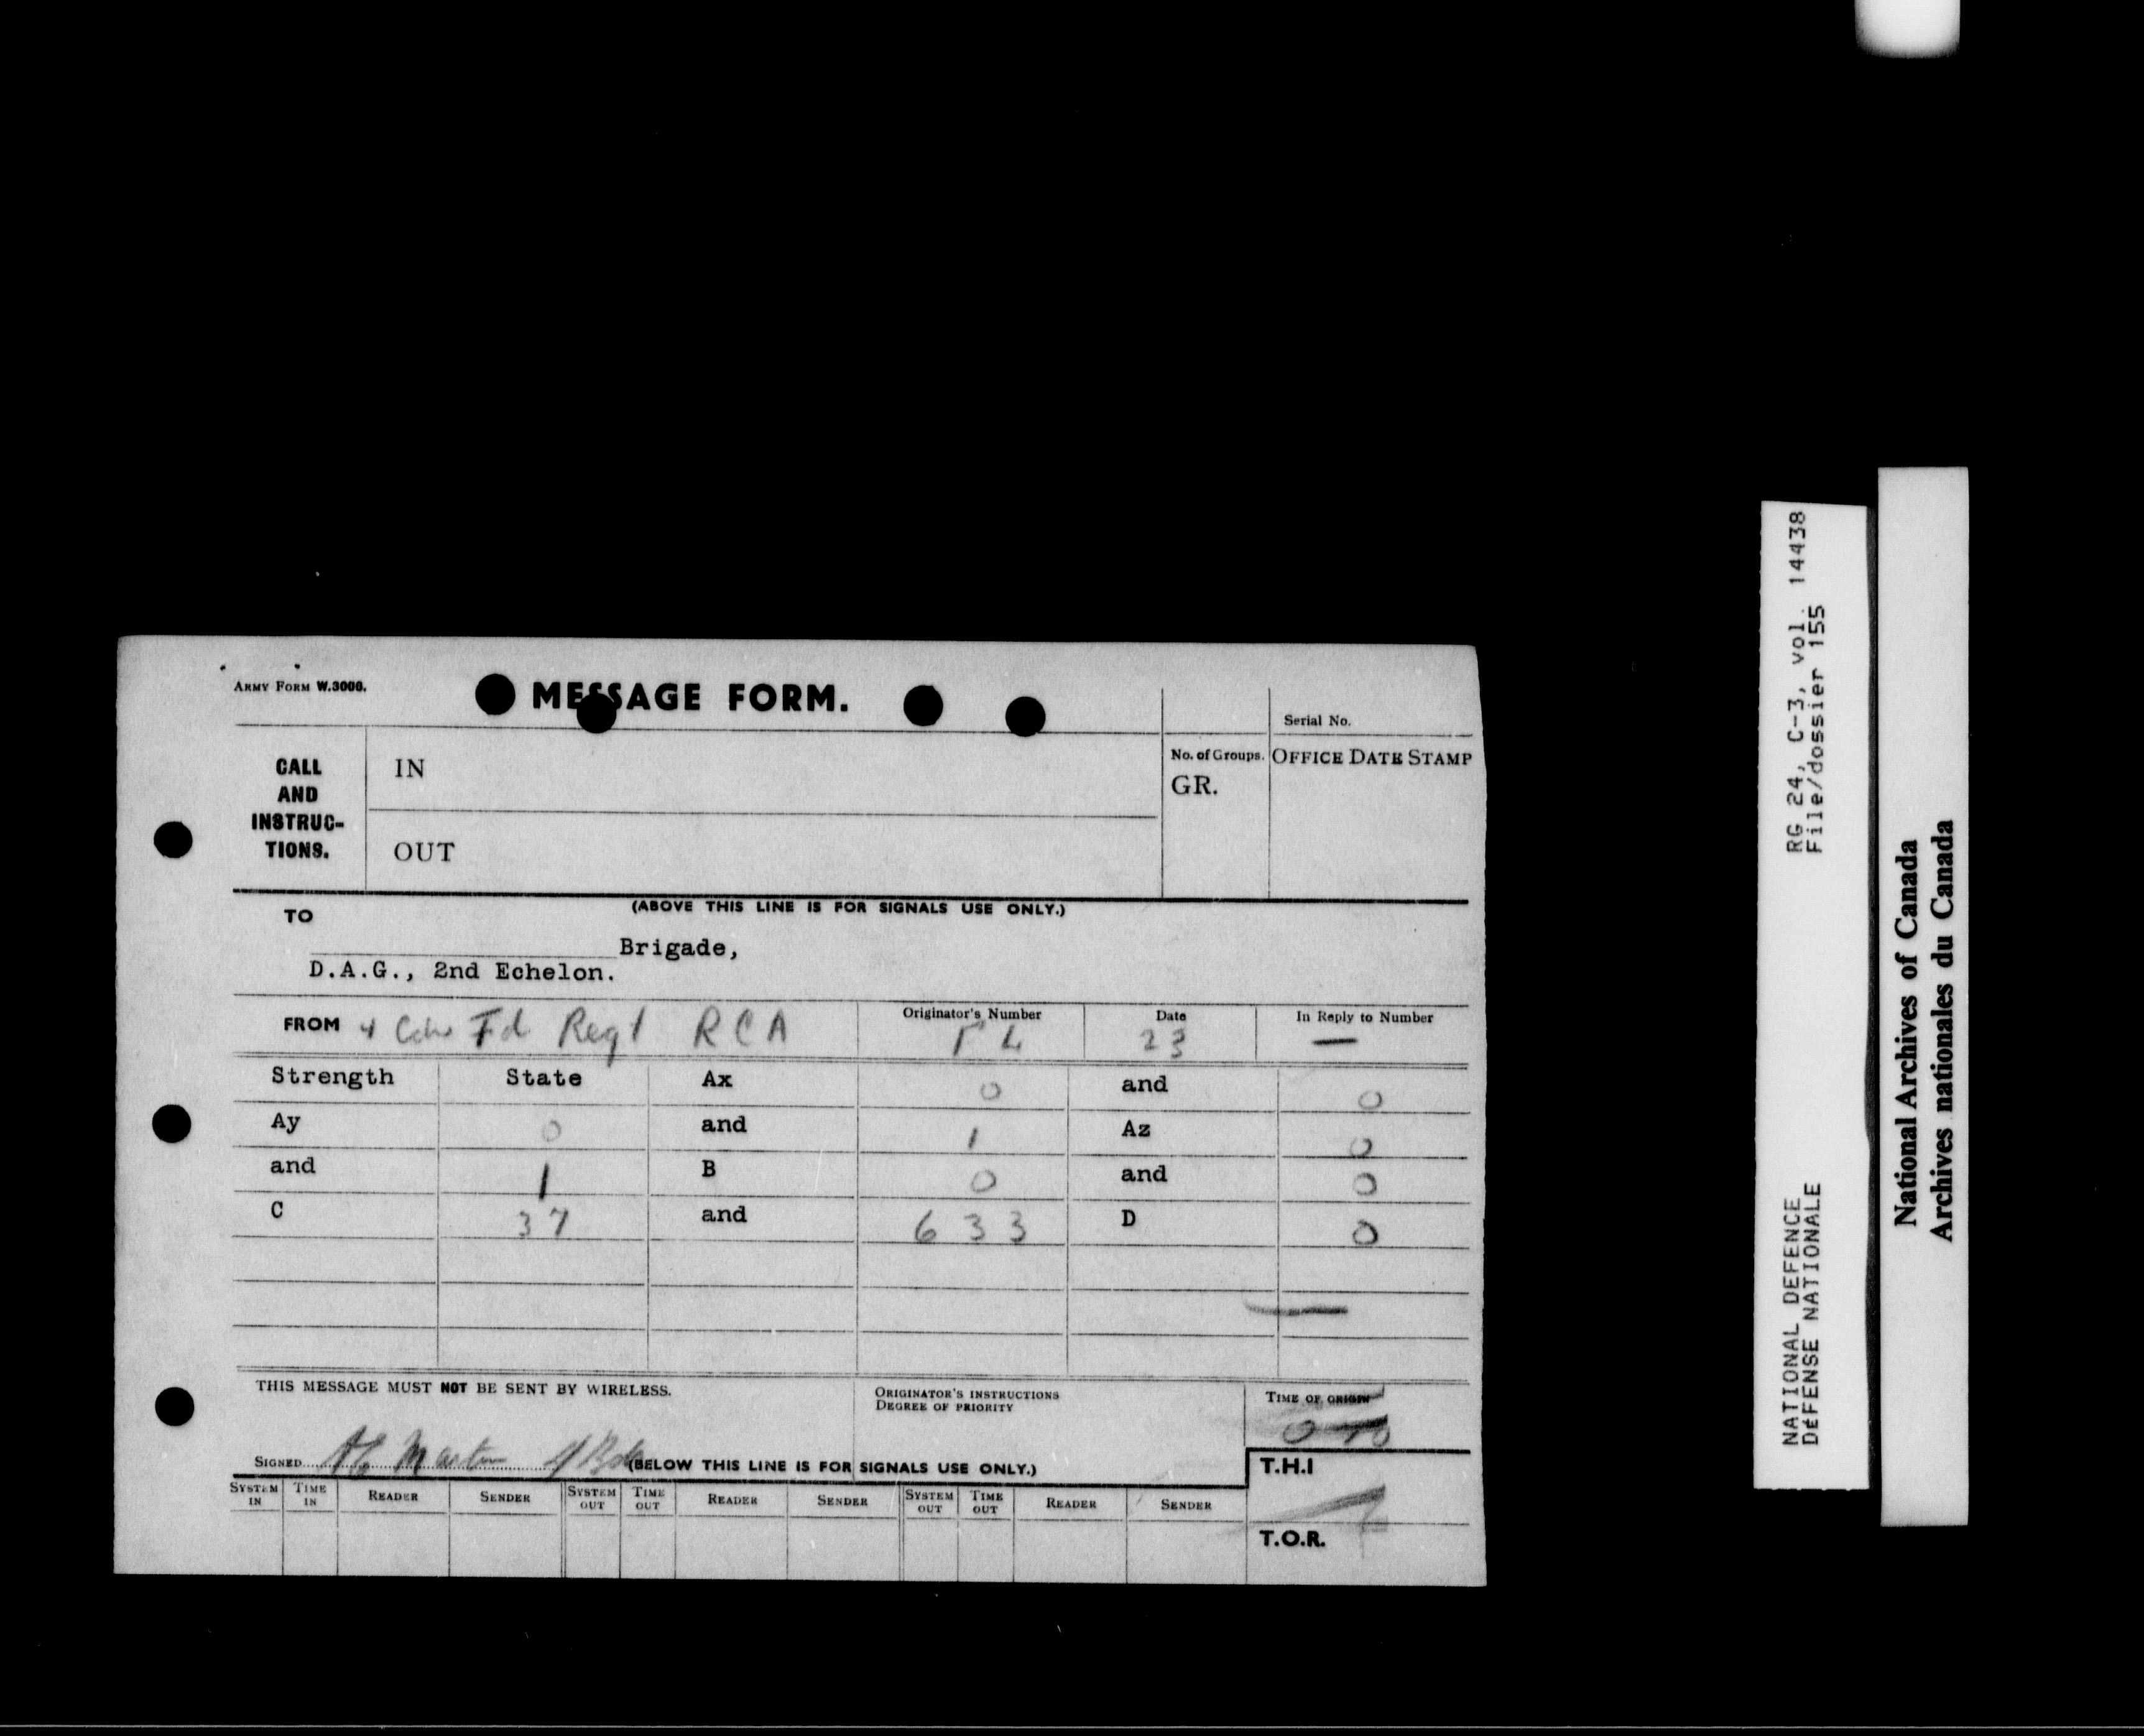 ARMY FORM W.3000.
MESSAGE FORM.
Serial No.
CALL AND INSTRUC-TIONS.
IN
OUT
No. of Groups.
GR.
OFFICE DATE STAMP
(ABOVE THIS LINE IS FOR SIGNALS USE ONLY.)
TO
Brigade,
D.A.G., 2nd Echelon.
FROM 4 Cdn Fd Regt RCA
Originator's Number
Date 23
In Reply to Number —
Strength State Ax 0 and 0
Ay 0 and 1 Az 0
and 1 B 0 and 0
C 37 and 633 D 0
THIS MESSAGE MUST NOT BE SENT BY WIRELESS.
ORIGINATOR'S INSTRUCTIONS
DEGREE OF PRIORITY
TIME OF ORIGIN
SIGNED Martin
(BELOW THIS LINE IS FOR SIGNALS USE ONLY.)
T.H.I
SYSTEM IN TIME IN READER SENDER SYSTEM OUT TIME OUT READER SENDER SYSTEM OUT TIME OUT READER SENDER
T.O.R.
RG 24, C-3, vol. 14438
File/dossier 155
NATIONAL DEFENCE
DÉFENSE NATIONALE
National Archives of Canada
Archives nationales du Canada